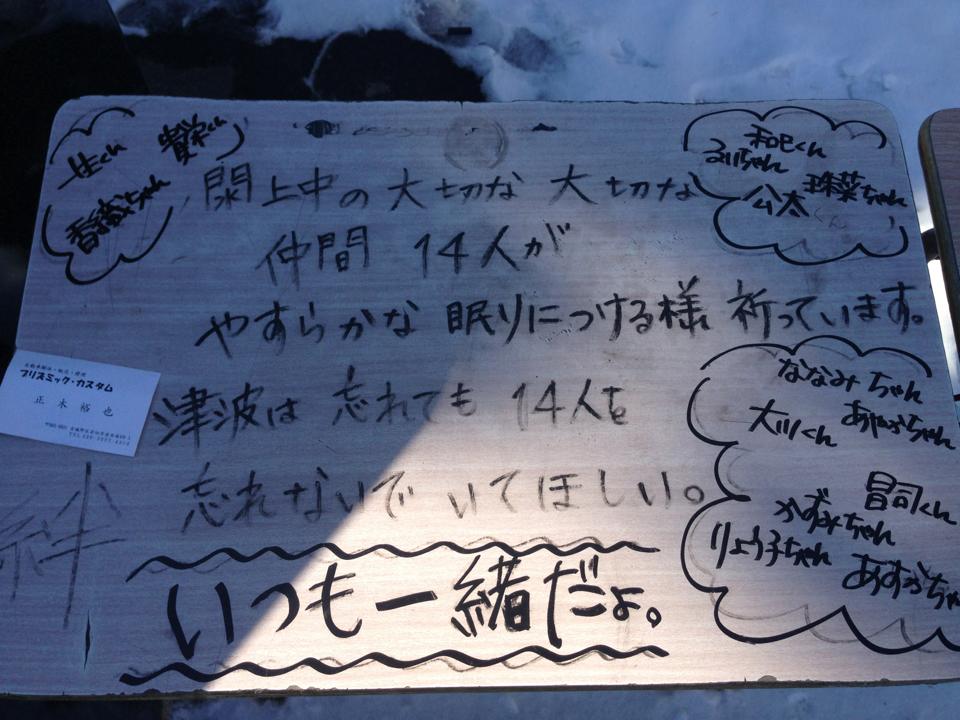 生くん
香織ちゃん
閖上中の大切な大切な
仲間 14人が
やすらかな 眠りにつける様 祈っています。
津波は 忘れても 14人を
忘れないで いてほしい。
いつも一緒だよ。
和巳くん
るいちゃん
公太くん
珠菜ちゃん
ななみちゃん
大川くん
あやかちゃん
昌司くん
かずみちゃん
りょう子ちゃん
あすかちゃ
プリズミック・カスタム
正木裕也
絆